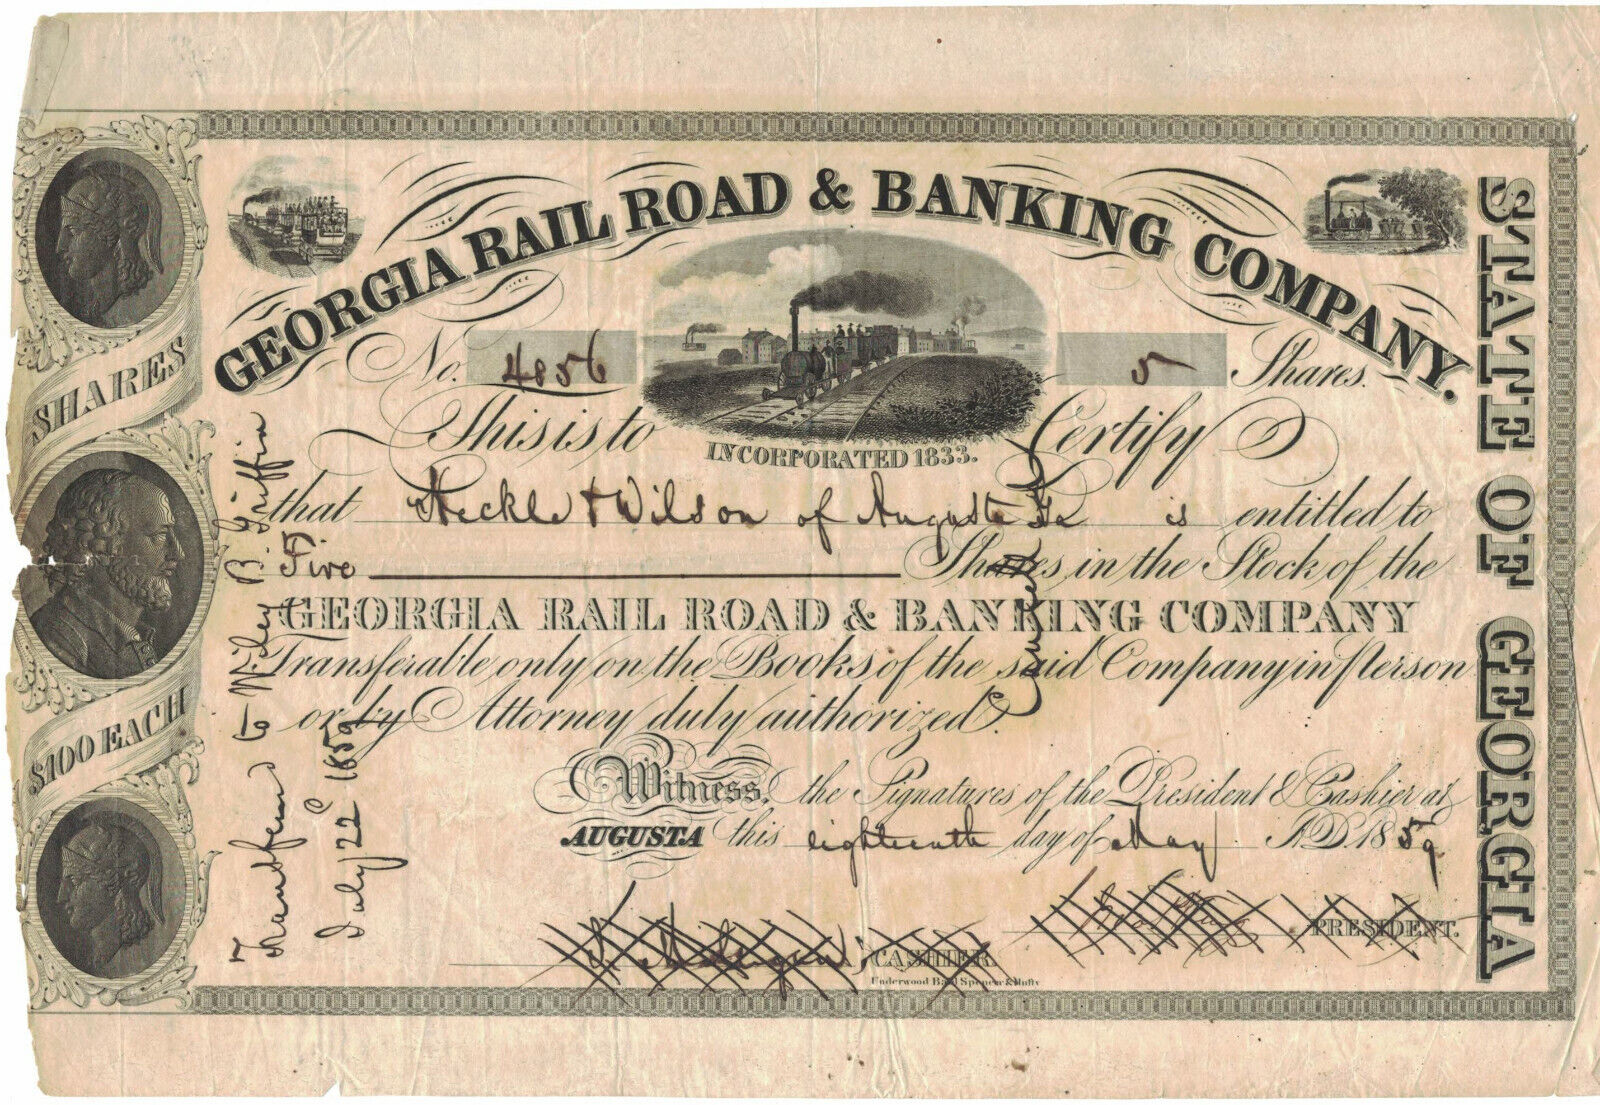 GEORGIA RAIL ROAD & BANKING COMPANY.
No. 4856
5 Shares.
INCORPORATED 1833.
This is to Certify
that Heckle & Wilson of Augusta Ga is entitled to
Five Shares in the Stock of the
GEORGIA RAIL ROAD & BANKING COMPANY
Transferable only on the Books of the said Company in person
or by Attorney duly authorized.
Witness, the Signatures of the President & Cashier at
AUGUSTA this eighteenth day of May A.D. 1859
PRESIDENT.
CASHIER.
Underwood Bald Spencer & Hufty
STATE OF GEORGIA
SHARES
$100 EACH
Transferred to Wiley B. Griffin
July 22d 1859
Cancelled